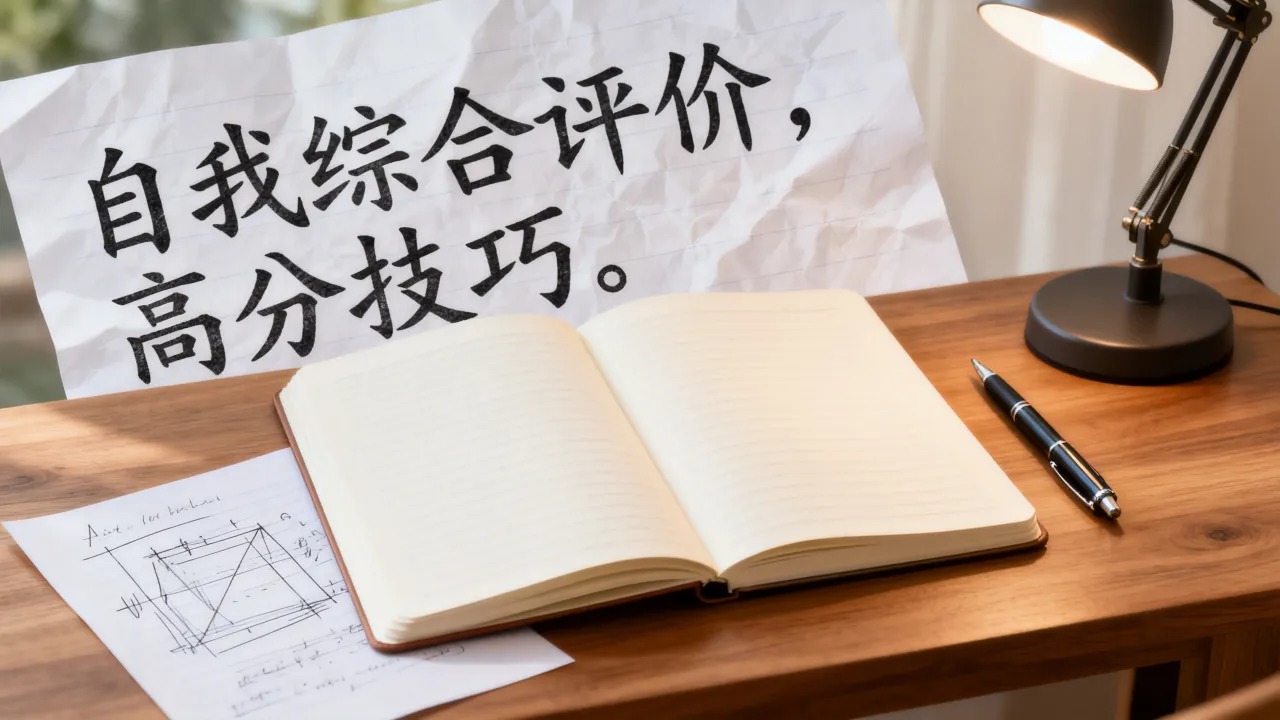 自我综合评价，
高分技巧。